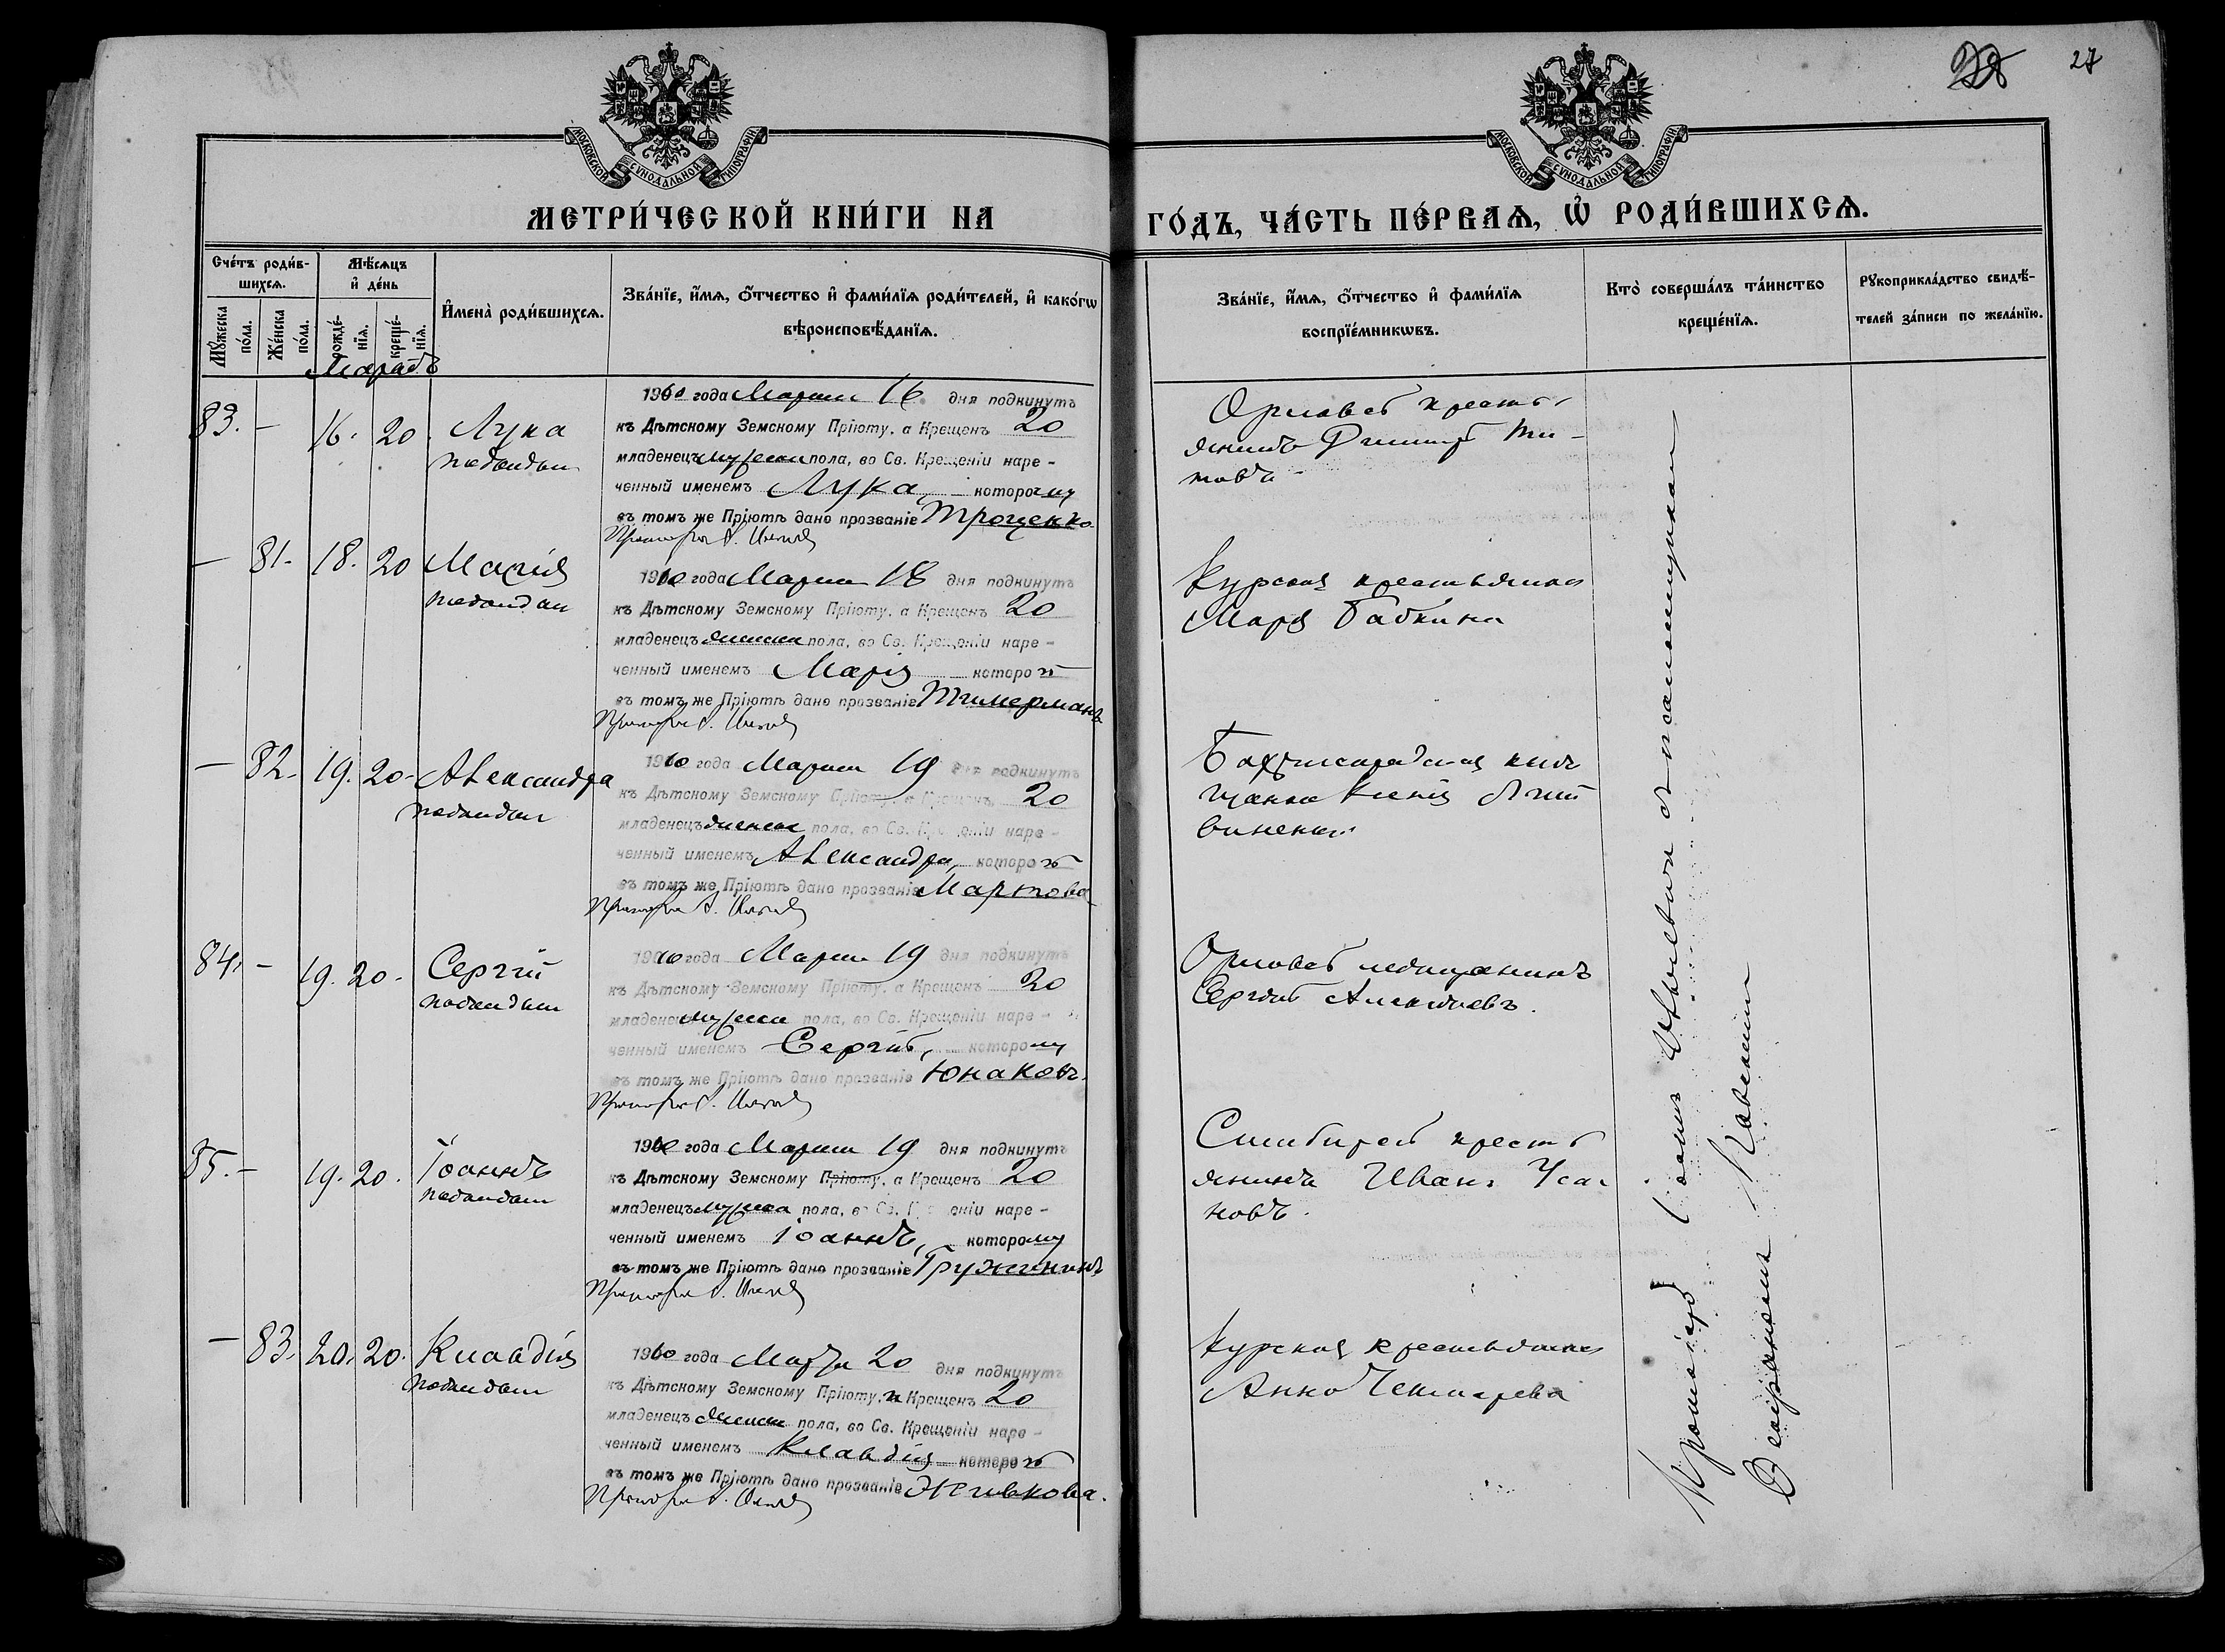 22 27
МОСКОВСКОЙ СѴНОДАЛЬНОЙ ТИПОГРАФІИ
МОСКОВСКОЙ СѴНОДАЛЬНОЙ ТИПОГРАФІИ
МЕТРИ́ЧЕСКОЙ КНИ́ГИ НА ГО́ДЪ, ЧА́СТЬ ПЕ́РВАѦ, Ѡ҆ РОДИ́ВШИХСѦ.
Сче́тъ роди́в-
шихсѧ.
Мꙋ́жеска по́ла.
Же́нска по́ла.
Мѣ́сѧцъ
и҆ де́нь
рожде́-нїѧ.
креще́-нїѧ.
И҆мена̀ роди́вшихсѧ.
Зва́нїе, и҆́мѧ, ѻ҆́тчество и҆ фами́лїѧ роди́телей, и҆ како́гѡ
вѣроисповѣ́данїѧ.
Зва́нїе, и҆́мѧ, ѻ҆́тчество и҆ фами́лїѧ
воспрїе́мникѡвъ.
Кто̀ соверша́лъ та́инство
креще́нїѧ.
Рꙋкоприкла́дство свидѣ́-
телей за́писи по жела́нїю.
Мартъ
83. — 16. 20. Лука
подкидыш
1910 года Марта 16 дня подкинутъ
къ Дѣтскому Земскому Пріюту, а Крещенъ 20
младенецъ мужска пола, во Св. Крещеніи наре-
ченный именемъ Лука, которому
въ томъ же Пріютѣ дано прозваніе Троценко.
Орловск крестья
янинъ Дмитрій Ти-
товъ
— 81. 18. 20 Марія
подкидыш
1910 года Марта 18 дня подкинутъ
къ Дѣтскому Земскому Пріюту, а Крещенъ 20
младенецъ женска пола, во Св. Крещеніи наре-
ченный именемъ Марія которой
въ томъ же Пріютѣ дано прозваніе Тимерманъ
Курская крестьянка
Марія Бабкина
— 82. 19. 20. Александра
подкидыш
1910 года Марта 19 дня подкинутъ
къ Дѣтскому Земскому Пріюту, а Крещенъ 20
младенецъ женска пола, во Св. Крещеніи наре-
ченный именемъ Александра, которой
въ томъ же Пріютѣ дано прозваніе Мартова
Ксенія
84. — 19. 20. Сергій
подкидыш
1910 года Марта 19 дня подкинутъ
къ Дѣтскому Земскому Пріюту, а Крещенъ 20
младенецъ мужска пола, во Св. Крещеніи наре-
ченный именемъ Сергій, которому
въ томъ же Пріютѣ дано прозваніе Юнаковъ.
Орловск мѣщанинъ
Сергій Алексѣевъ.
85. — 19. 20. Іоаннъ
подкидыш
1910 года Марта 19 дня подкинутъ
къ Дѣтскому Земскому Пріюту, а Крещенъ 20
младенецъ мужска пола, во Св. Крещеніи наре-
ченный именемъ Іоаннъ, которому
въ томъ же Пріютѣ дано прозваніе Гружининъ
Симбирск крестья
янинъ Иванъ Уса
новъ.
— 83. 20. 20. Клавдія
подкидыш
1910 года Марта 20 дня подкинутъ
къ Дѣтскому Земскому Пріюту, и Крещенъ 20
младенецъ женска пола, во Св. Крещеніи наре-
ченный именемъ Клавдія которой
въ томъ же Пріютѣ дано прозваніе Живкова.
Курская крестьянка
Анна
Протоіерей Іоаннъ съ псаломщикомъ